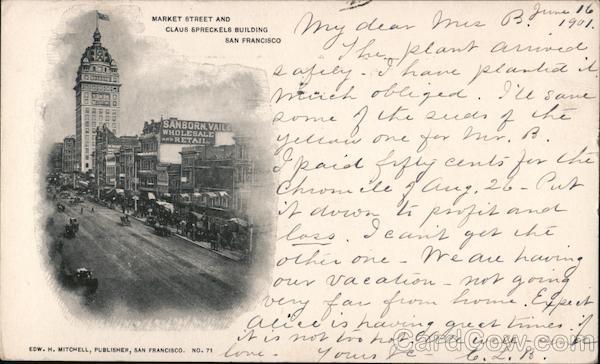 MARKET STREET AND
CLAUS SPRECKELS BUILDING
SAN FRANCISCO
SANBORN, VAIL
WHOLESALE
AND
RETAIL
June 16
1901.
My dear Mrs B.
The plant arrived
safely - I have planted it
Much obliged. I'll save
some of the seeds of the
yellow one for Mr. B.
I paid fifty cents for the
Chronicle of Aug. 26 - Put
it down to profit and
loss. I can't get the
other one - We are having
our vacation - not going
very far from home. Expect
Alice is having great times if
it is not too hot
love - Yours &c
EDW. H. MITCHELL, PUBLISHER, SAN FRANCISCO. NO. 71
CardCow.com